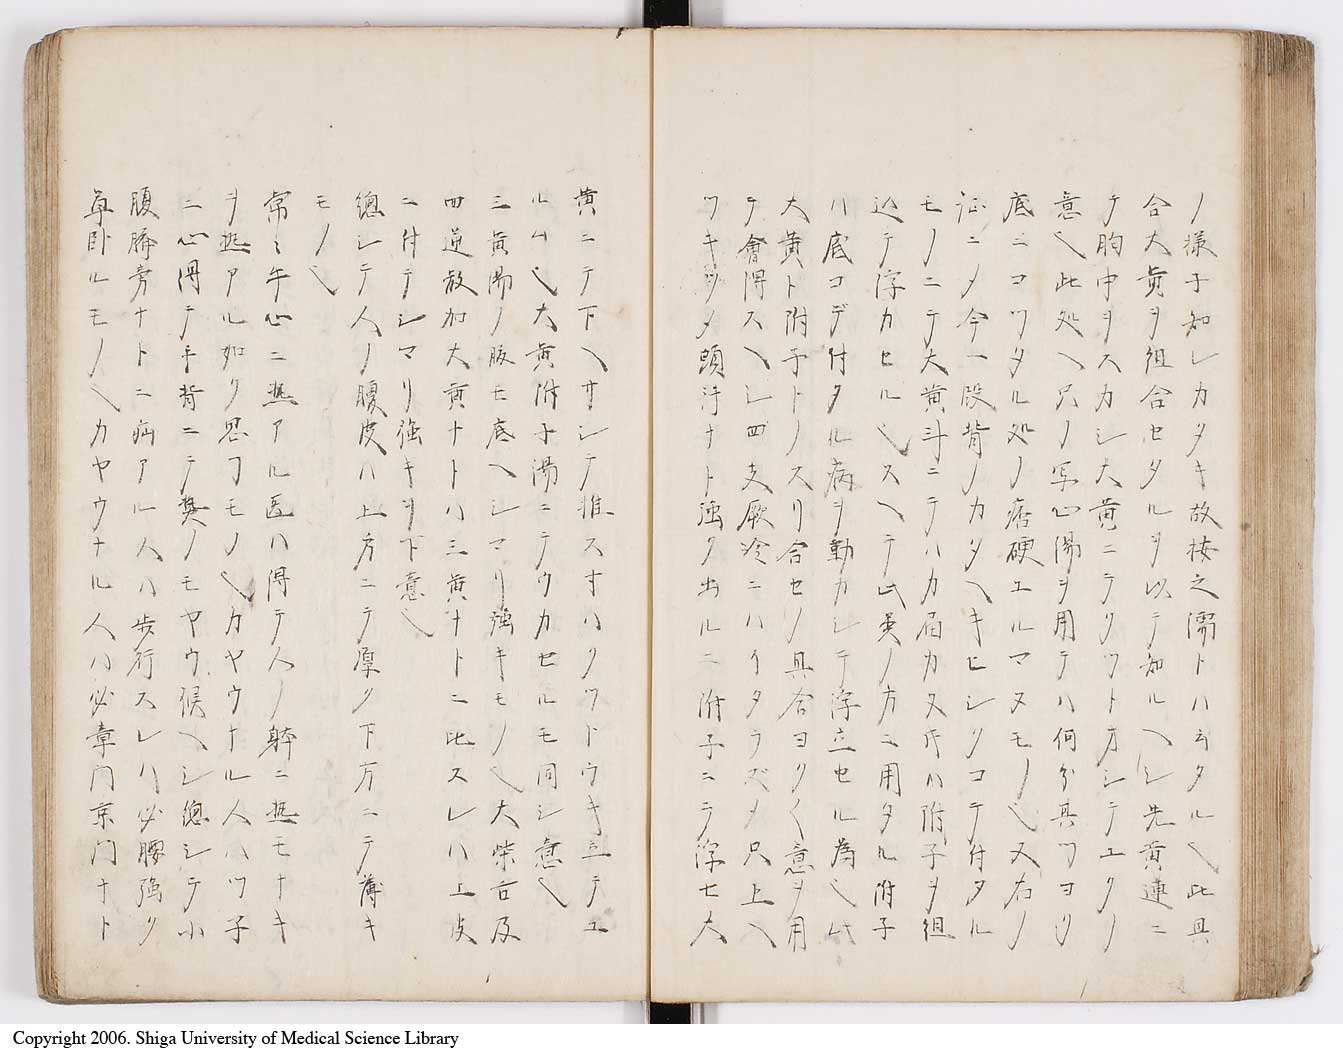 ノ様子知レカタキ故按之濡トハ云タル也此具
合大黄ヲ組合セタルヲ以テ知ルヘシ先黄連ニ
テ胸中ヲスカシ大黄ニテクワト方シテユクノ
意也此処ヘ只ノ写心湯ヲ用テハ何分其ツヨリ
底ニコワタル処ノ痞硬ユルマヌモノ也又右ノ
証ニノ今一段背ノカタヘキビシクコテ付タル
モノニテ大黄斗ニテハカ届カヌ片ハ附子ヲ組
込テ浮カセル也スヘテ此美ノ方ニ用タル附子
ハ底コデ付タル病ヲ動カシテ浮立セル為也此
大黄ト附子トノスリ合セノ具合ヨク〱意ヲ用
テ會得スヘシ四支厥冷ニハイタラズメ只上ヘ
ワキツメ頭汗ナト強ク出ルニ附子ニテ浮セ大
黄ニテ下ヘサシテ推スオハクワトウキ立テユ
ルム也大黄附子湯ニテウカセルモ同シ意也
三黄湯ノ腹モ底ヘシマリ強キモノ也大柴古及
四逆散加大黄ナトハ三黄ナトニ比スレハ上皮
ニ付テシマリ強キヲ下意也
總シテ人ノ腹皮ハ上方ニテ厚ク下方ニテ薄キ
モノ也
常ニ手心ニ熱アル医ハ得テ人ノ躰ニ熱モナキ
ヲ熱アル如ク思フモノ也カヤウナル人ハツ子
ニ心得テ手背ニテ熱ノモヤウ候ヘシ總シテ小
腹臍旁ナトニ病アル人ハ歩行スレハ必腰強ク
草臥ルモノ也カヤウナル人ハ必章門京門ナト
Copyright 2006. Shiga University of Medical Science Library